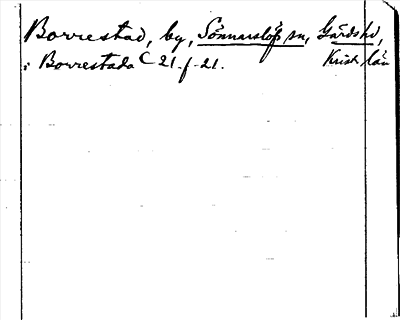 Borrestad, by, Sönnarslöfs sn, Gärds hd,
Krist. län
: Borrestada C 21. f. 21.